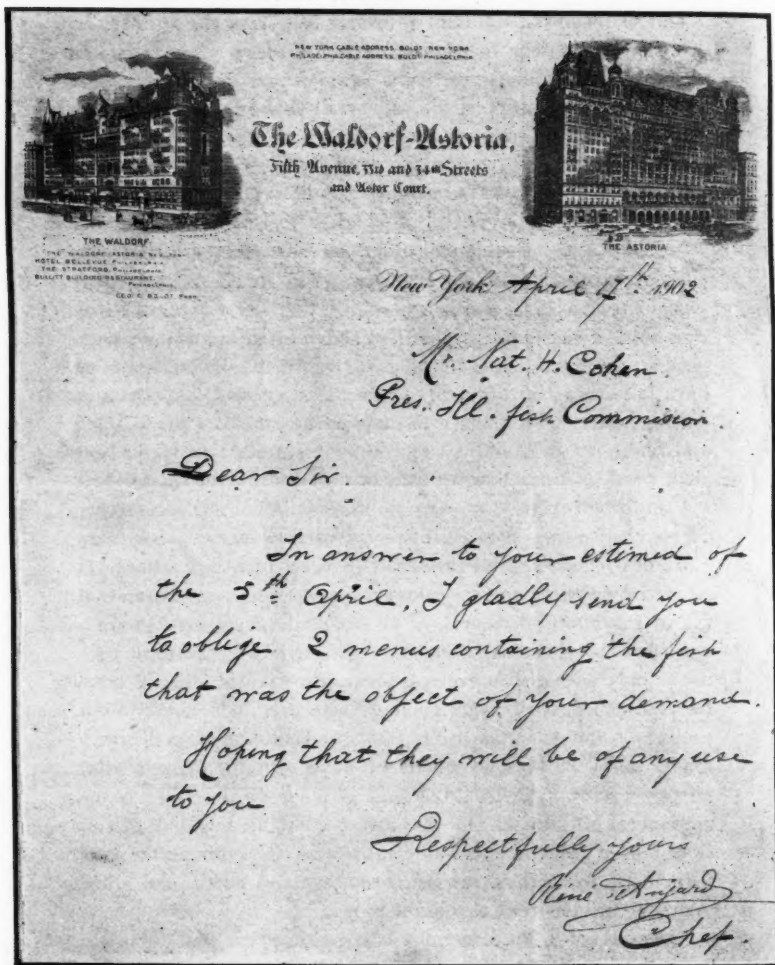 NEW YORK CABLE ADDRESS, BOLDT, NEW YORK
PHILADELPHIA CABLE ADDRESS, BOLDT, PHILADELPHIA
The Waldorf-Astoria,
Fifth Avenue, 33rd and 34th Streets
and Astor Court.
THE WALDORF
THE WALDORF-ASTORIA, NEW YORK
HOTEL BELLEVUE, PHILADELPHIA
THE STRATFORD, PHILADELPHIA
BULLITT BUILDING RESTAURANT,
PHILADELPHIA.
GEO. C. BOLDT, PROP.
THE ASTORIA
New York April 17th 1902
Mr. Nat. H. Cohen.
Pres. Ill. fish Commision.
Dear Sir.
In answer to your estimed of
the 5th April, I gladly send you
to oblege 2 menus containing the fish
that was the object of your demand.
Hoping that they will be of any use
to you
Respectfully yours
René Anjard
Chef.